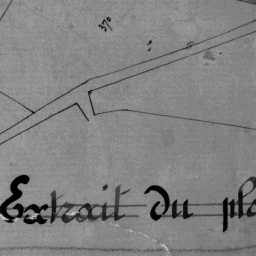 370
Extrait du pla